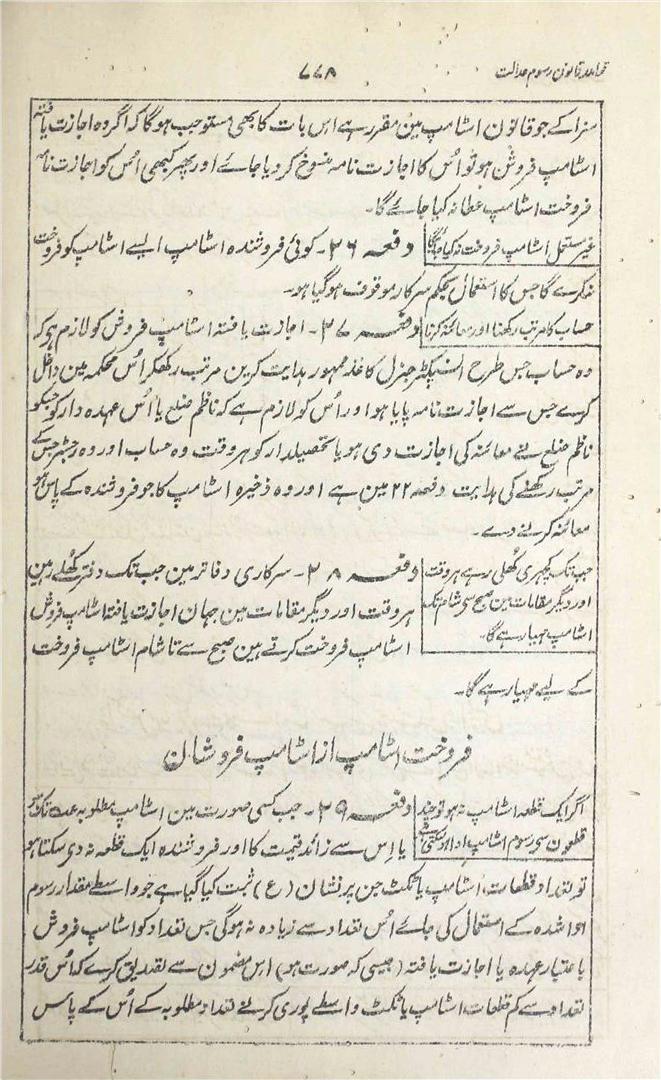 قواعد قانون رسوم عدالت
۷۷۸
سزا کے جو قانون اسٹامپ مین مقرر ہے اس بات کا بھی مستوجب ہوگا کہ اگر وہ اجازت یافتہ
اسٹامپ فروش ہو تو اُس کا اجازت نامہ منسوخ کر دیا جائے اور پھر کبھی اُس کو اجازت نامہ
فروخت اسٹامپ عطا نہ کیا جائے گا۔
غیر مستعمل اسٹامپ فروخت نہ کیا جائیگا
دفعہ ۲۶۔ کوئی فروشندہ اسٹامپ ایسے اسٹامپ کو فروخت
نہ کرے گا جس کا استعمال بحکم سرکار موقوف ہو گیا ہو۔
حساب کا مرتب رکھنا اور معائنہ کرنا
دفعہ ۲۷۔ اجازت یافتہ اسٹامپ فروش کو لازم ہو کہ
وہ حساب جس طرح انسپکٹر جنرل کاغذ ممہور ہدایت کرین مرتب رکھکر اُس محکمہ مین داخل
کرے جس سے اجازت نامہ پایا ہو اور اُس کو لازم ہے کہ ناظم ضلع یا اُس عہدہ دار کو جسکو
ناظم ضلع نے معائنہ کی اجازت دی ہو یا تحصیلدار کو ہر وقت وہ حساب اور وہ رجسٹر جس کے
مرتب رکھنے کی ہدایت دفعہ ۲۲ مین ہے اور وہ ذخیرہ اسٹامپ کا جو فروشندہ کے پاس ہو
معائنہ کرنے دے۔
جب تک کچہری کھلی رہے ہر وقت
اور دیگر مقامات مین صبح سی شام تک
اسٹامپ مہیا رہے گا۔
دفعہ ۲۸۔ سرکاری دفاتر مین جب تک دفتر کھلے رہین
ہر وقت اور دیگر مقامات مین جہان اجازت یافتہ اسٹامپ فروش
اسٹامپ فروخت کرتے ہین صبح سے تا شام اسٹامپ فروخت
کے لیے مہیا رہے گا۔
فروخت اسٹامپ از اسٹامپ فروشان
اگر ایک قطعہ اسٹامپ نہ ہو تو چند
قطعون سی رسوم اسٹامپ ادا ہو سکتی ہے
دفعہ ۲۹۔ جب کسی صورت مین اسٹامپ مطلوبہ
یا اِس سے زائد قیمت کا اور فروشندہ ایک قطعہ نہ دی سکتا ہو
تو تعداد قطعات اسٹامپ یا ٹکٹ جن پر نشان (ع) ثبت کیا گیا ہے جو واسطے مقدار رسوم
ادا شدہ کے استعمال کی جائے اُس تعداد سے زیادہ نہ ہوگی جس تعداد کو اسٹامپ فروش
باعتبار عہدہ یا اجازت یافتہ (جیسی کہ صورت ہو) اس مضمون سے تصدیق کرے کہ اُس قدر
تعداد سے کم قطعات اسٹامپ یا ٹکٹ واسطے پوری کرنے تعداد مطلوبہ کے اُس کے پاس